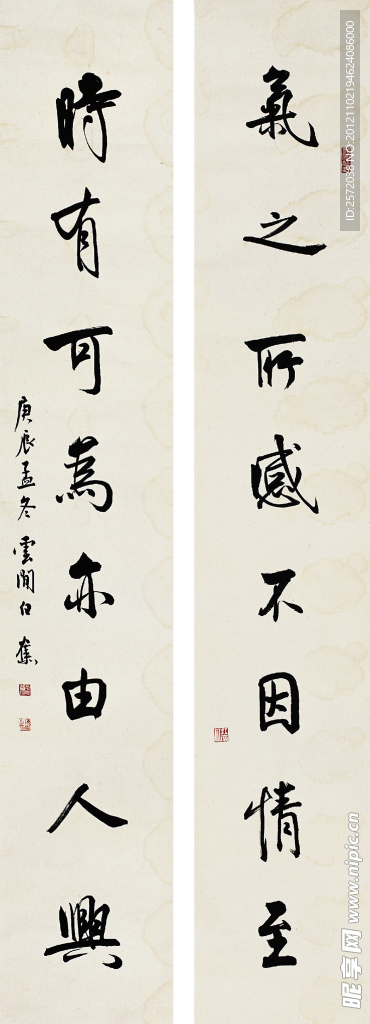 氣之所感不因情至
時有可為亦由人興
庚辰孟冬 雲間白蕉
ID:2572038 NO.20121102194624086000
昵享网 www.nipic.cn